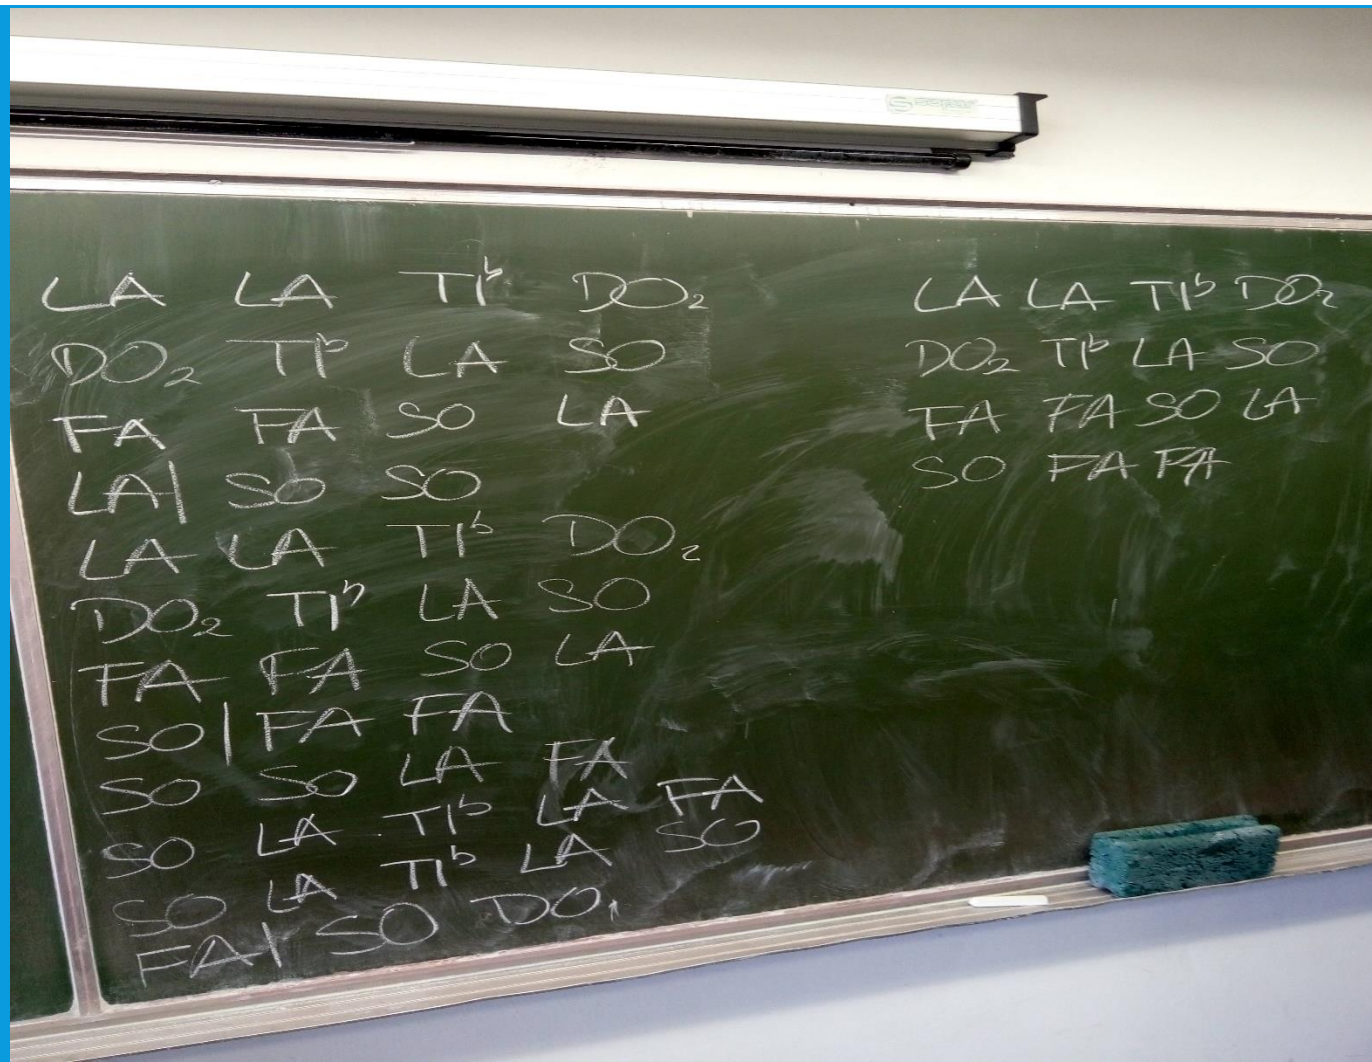 LA LA TI♭ DO₂
DO₂ TI♭ LA SO
FA FA SO LA
LA| SO SO
LA LA TI♭ DO₂
DO₂ TI♭ LA SO
FA FA SO LA
SO| FA FA
SO SO LA FA
SO LA TI♭ LA FA
SO LA TI♭ LA SO
FA| SO DO₁
LA LA TI♭ DO₂
DO₂ TI♭ LA SO
FA FA SO LA
SO FA FA